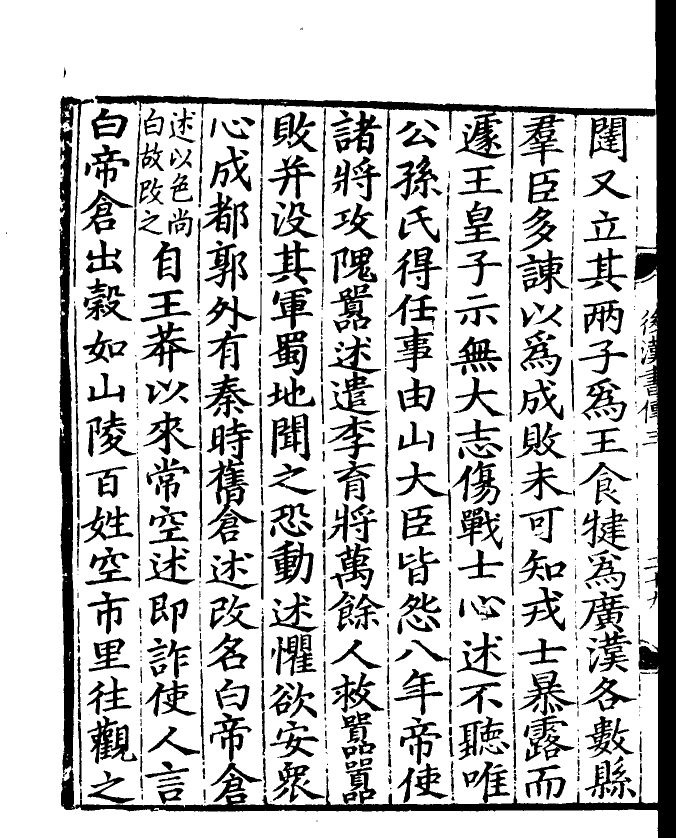 後漢書傳三
闥又立其兩子爲王食犍爲廣漢各數縣
羣臣多諫以爲成敗未可知戎士暴露而
遽王皇子示無大志傷戰士心述不聽唯
公孫氏得任事由此大臣皆怨八年帝使
諸將攻隗囂述遣李育將萬餘人救囂囂
敗并没其軍蜀地聞之恐動述懼欲安衆
心成都郭外有秦時舊倉述改名白帝倉
述以色尚
白故改之
自王莽以來常空述即詐使人言
白帝倉出穀如山陵百姓空市里往觀之